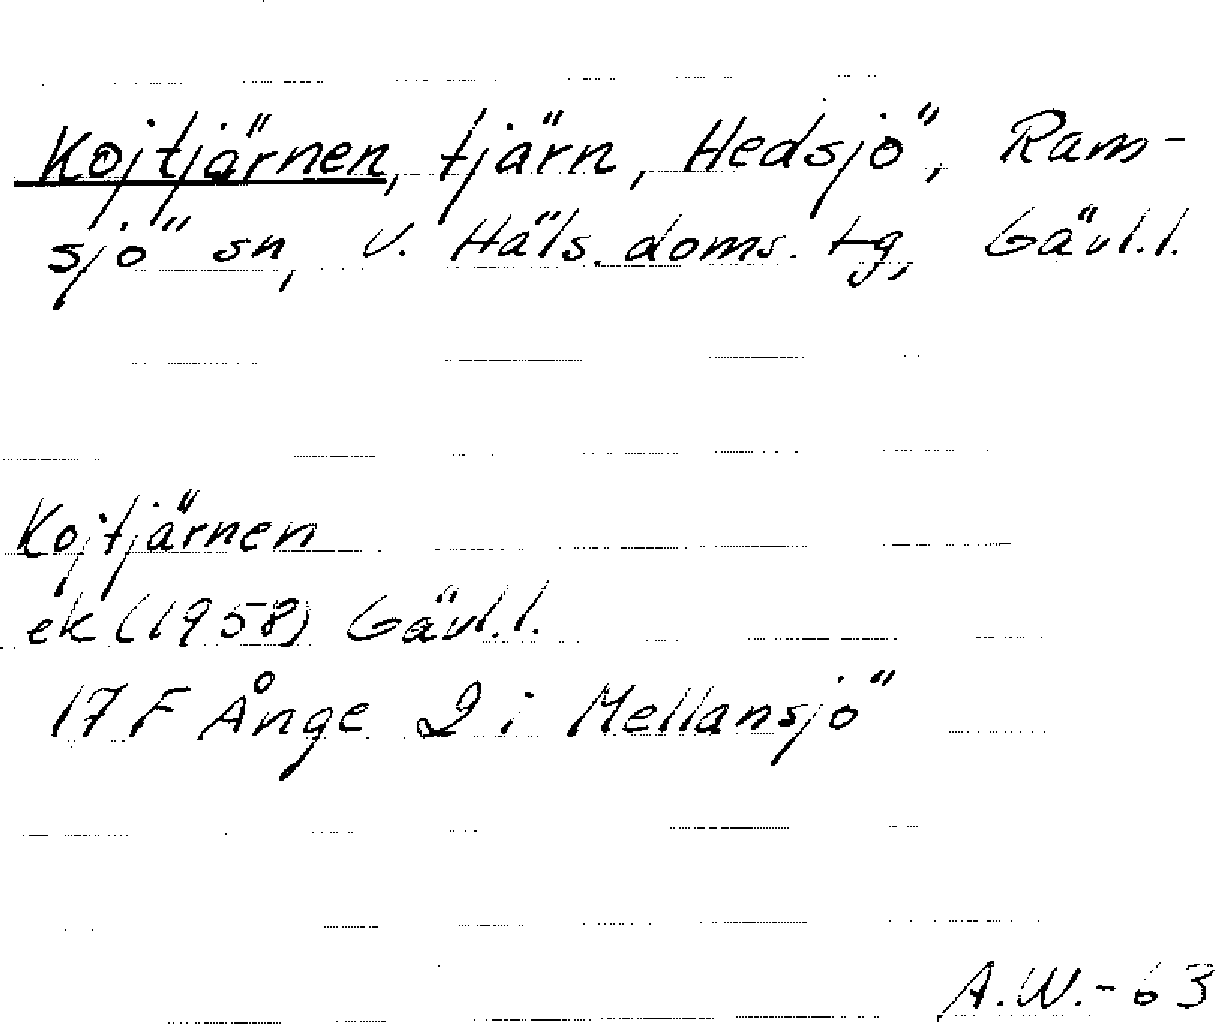 Kojtjärnen, tjärn, Hedsjö, Ram-
sjö sn, V. Häls. doms. tg, Gävl.l.
Kojtjärnen
ek (1958) Gävl.l.
17 F Ånge 2 i Mellansjö
A.W.-63